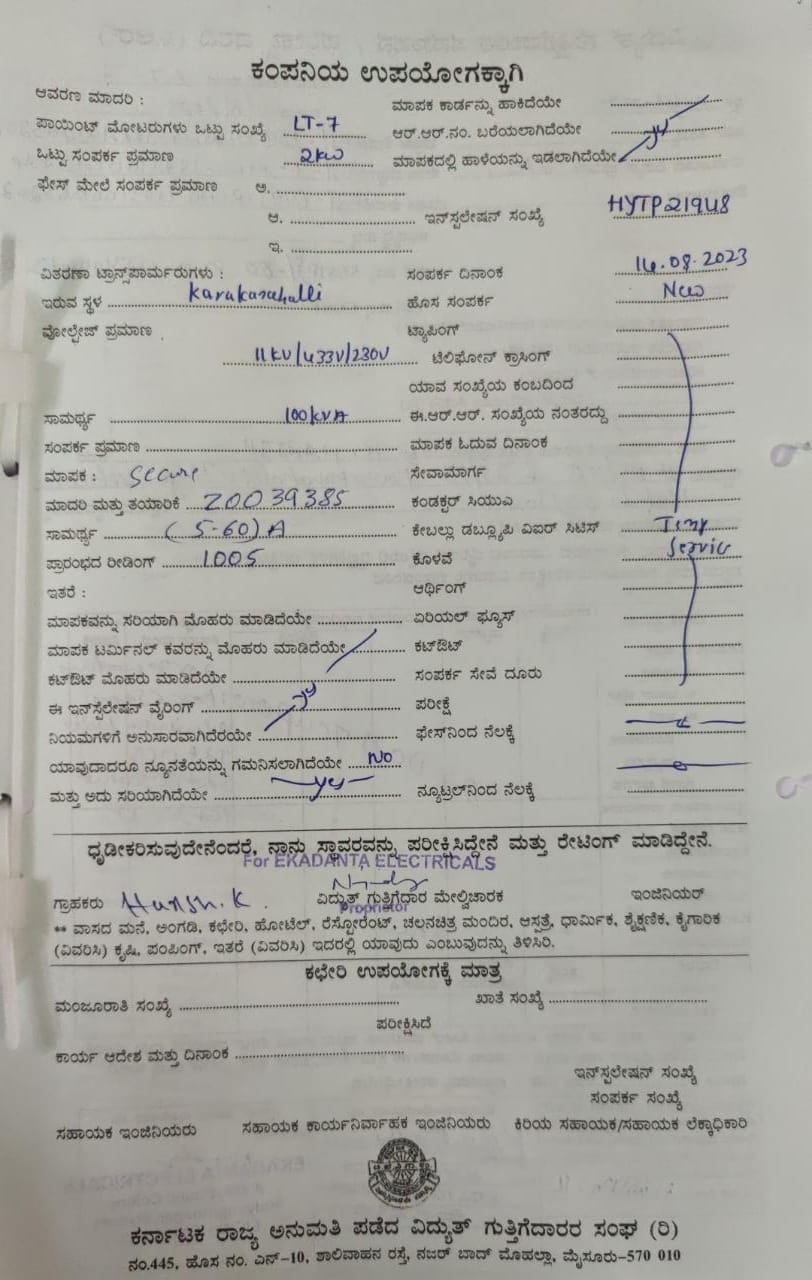 ಕಂಪನಿಯ ಉಪಯೋಗಕ್ಕಾಗಿ
ಆವರಣ ಮಾದರಿ : ಮಾಪಕ ಕಾರ್ಡನ್ನು ಹಾಕಿದೆಯೇ
ಪಾಯಿಂಟ್ ಮೋಟರುಗಳು ಒಟ್ಟು ಸಂಖ್ಯೆ LT-7 ಆರ್.ಆರ್.ನಂ. ಬರೆಯಲಾಗಿದೆಯೇ
ಒಟ್ಟು ಸಂಪರ್ಕ ಪ್ರಮಾಣ 2kw ಮಾಪಕದಲ್ಲಿ ಹಾಳೆಯನ್ನು ಇಡಲಾಗಿದೆಯೇ
ಫೇಸ್ ಮೇಲೆ ಸಂಪರ್ಕ ಪ್ರಮಾಣ ಅ.
ಆ. ಇನ್‌ಸ್ಟಲೇಷನ್ ಸಂಖ್ಯೆ HYTP21948
ಇ.
ವಿತರಣಾ ಟ್ರಾನ್ಸ್‌ಪಾರ್ಮರುಗಳು : ಸಂಪರ್ಕ ದಿನಾಂಕ 14.08.2023
ಇರುವ ಸ್ಥಳ Karakanahalli ಹೊಸ ಸಂಪರ್ಕ New
ವೋಲ್ಟೇಜ್ ಪ್ರಮಾಣ ಟ್ಯಾಪಿಂಗ್
11kV/433V/230V ಟೆಲಿಫೋನ್ ಕ್ರಾಸಿಂಗ್
ಯಾವ ಸಂಖ್ಯೆಯ ಕಂಬದಿಂದ
ಸಾಮರ್ಥ್ಯ 100kVA ಈ.ಆರ್.ಆರ್. ಸಂಖ್ಯೆಯ ನಂತರದ್ದು
ಸಂಪರ್ಕ ಪ್ರಮಾಣ ಮಾಪಕ ಓದುವ ದಿನಾಂಕ
ಮಾಪಕ : Secure ಸೇವಾಮಾರ್ಗ
ಮಾದರಿ ಮತ್ತು ತಯಾರಿಕೆ Z0039385 ಕಂಡಕ್ಟರ್ ಸಿಯುಎ
ಸಾಮರ್ಥ್ಯ (5-60)A ಕೇಬಲ್ಲು ಡಬ್ಲ್ಯೂಪಿ ವಿಐರ್ ಸಿಟಿಸ್ Temp
ಪ್ರಾರಂಭದ ರೀಡಿಂಗ್ 1005 ಕೊಳವೆ Service
ಇತರೆ : ಆರ್ಥಿಂಗ್
ಮಾಪಕವನ್ನು ಸರಿಯಾಗಿ ಮೊಹರು ಮಾಡಿದೆಯೇ ಏರಿಯಲ್ ಫ್ಯೂಸ್
ಮಾಪಕ ಟರ್ಮಿನಲ್ ಕವರನ್ನು ಮೊಹರು ಮಾಡಿದೆಯೇ ಕಟ್‌ಔಟ್
ಕಟ್‌ಔಟ್ ಮೊಹರು ಮಾಡಿದೆಯೇ ಸಂಪರ್ಕ ಸೇವೆ ದೂರು
ಈ ಇನ್‌ಸ್ಟೆಲೇಷನ್ ವೈರಿಂಗ್ ಪರೀಕ್ಷೆ
ನಿಯಮಗಳಿಗೆ ಅನುಸಾರವಾಗಿದೆರಯೇ ಫೇಸ್‌ನಿಂದ ನೆಲಕ್ಕೆ
ಯಾವುದಾದರೂ ನ್ಯೂನತೆಯನ್ನು ಗಮನಿಸಲಾಗಿದೆಯೇ No
ಮತ್ತು ಅದು ಸರಿಯಾಗಿದೆಯೇ yes ನ್ಯೂಟ್ರಲ್‌ನಿಂದ ನೆಲಕ್ಕೆ
ಧೃಡೀಕರಿಸುವುದೇನೆಂದರೆ, ನಾನು ಸ್ಥಾವರವನ್ನು ಪರೀಕ್ಷಿಸಿದ್ದೇನೆ ಮತ್ತು ರೇಟಿಂಗ್ ಮಾಡಿದ್ದೇನೆ.
For EKADANTA ELECTRICALS
ಗ್ರಾಹಕರು Harish.K ವಿದ್ಯುತ್ ಗುತ್ತಿಗೆದಾರ ಮೇಲ್ವಿಚಾರಕ ಇಂಜಿನಿಯರ್
Proprietor
** ವಾಸದ ಮನೆ, ಅಂಗಡಿ, ಕಛೇರಿ, ಹೋಟೆಲ್, ರೆಸ್ಟೋರೆಂಟ್, ಚಲನಚಿತ್ರ ಮಂದಿರ, ಆಸ್ಪತ್ರೆ, ಧಾರ್ಮಿಕ, ಶೈಕ್ಷಣಿಕ, ಕೈಗಾರಿಕ
(ವಿವರಿಸಿ) ಕೃಷಿ, ಪಂಪಿಂಗ್, ಇತರೆ (ವಿವರಿಸಿ) ಇದರಲ್ಲಿ ಯಾವುದು ಎಂಬುವುದನ್ನು ತಿಳಿಸಿರಿ.
ಕಛೇರಿ ಉಪಯೋಗಕ್ಕೆ ಮಾತ್ರ
ಮಂಜೂರಾತಿ ಸಂಖ್ಯೆ ಖಾತೆ ಸಂಖ್ಯೆ
ಪರೀಕ್ಷಿಸಿದೆ
ಕಾರ್ಯ ಆದೇಶ ಮತ್ತು ದಿನಾಂಕ
ಇನ್‌ಸ್ಪಲೇಷನ್ ಸಂಖ್ಯೆ
ಸಂಪರ್ಕ ಸಂಖ್ಯೆ
ಸಹಾಯಕ ಇಂಜಿನಿಯರು ಸಹಾಯಕ ಕಾರ್ಯನಿರ್ವಾಹಕ ಇಂಜಿನಿಯರು ಕಿರಿಯ ಸಹಾಯಕ/ಸಹಾಯಕ ಲೆಕ್ಕಾಧಿಕಾರಿ
ಕರ್ನಾಟಕ ರಾಜ್ಯ ಅನುಮತಿ ಪಡೆದ ವಿದ್ಯುತ್ ಗುತ್ತಿಗೆದಾರರ ಸಂಘ (ರಿ)
ನಂ.445, ಹೊಸ ನಂ. ಎನ್-10, ಶಾಲಿವಾಹನ ರಸ್ತೆ, ನಜರ್ ಬಾದ್ ಮೊಹಲ್ಲಾ, ಮೈಸೂರು-570 010